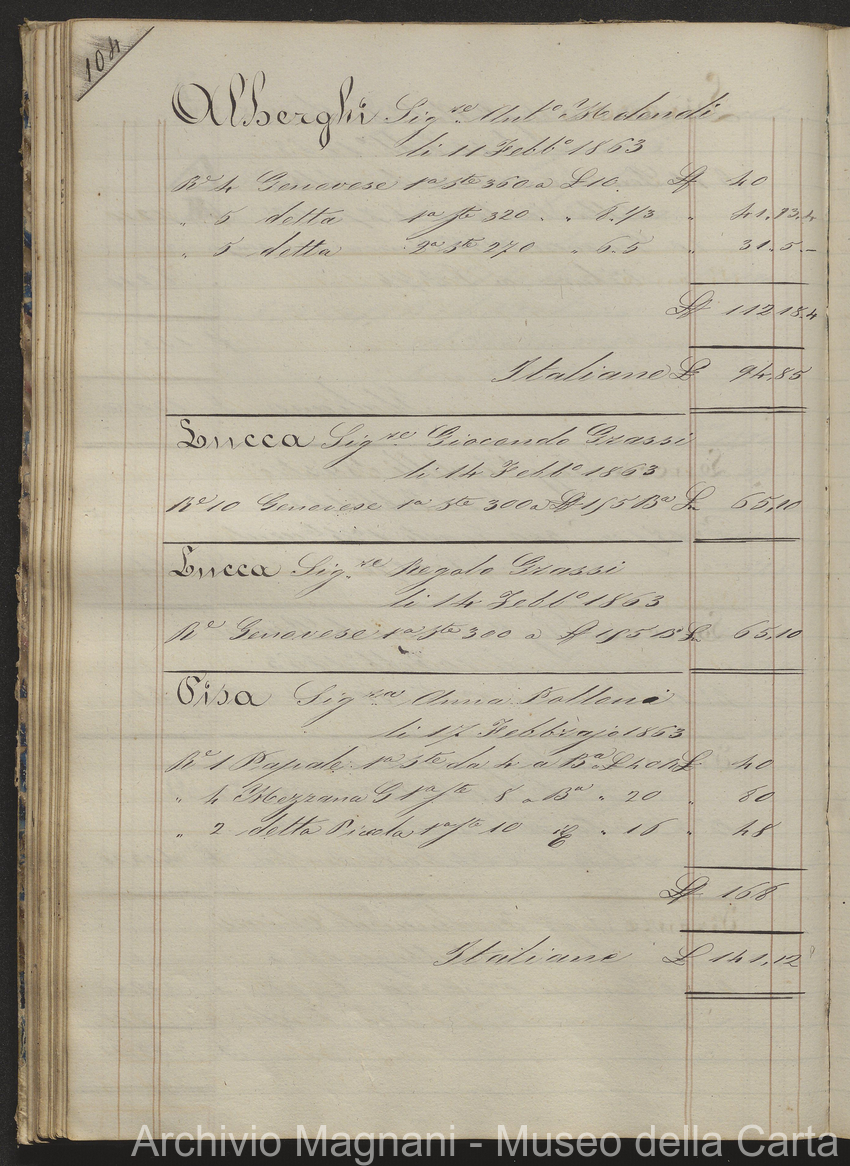 104
Alberghi Sig.re Ant.o Molendi
li 11 Febb.o 1863
R.e 4 Genovese 1a S.te 360 a £ 10. £ 40
" 5 detta 1a S.te 320 . " 8.1/3 " 41.13.4
" 5 detta 2a S.te 270 " 6.5 " 31.5.-
£ 112.18.4
Italiane £ 94,85
Lucca Sig.re Giocondo Grassi
li 14 Febb.o 1863
R.e 10 Genovese 1a S.te 300 a £ 15 Ba £n 65,10
Lucca Sig.re Regolo Grassi
li 14 Febb.o 1863
R.e Genovese 1a S.te 300 a £ 15 Ba £n 65,10
Pisa Sig.ra Anna Palloni
li 17 Febbrajo 1863
R.e 1 Papale 1a S.te da 4 a Ba £ 40 £ 40
" 4 Mezzana G 1a S.te 8 a Ba " 20 " 80
" 2 detta Picola 1a S.te 10 " 16 " 48
£ 168
Italiane £ 141,12
Archivio Magnani - Museo della Carta